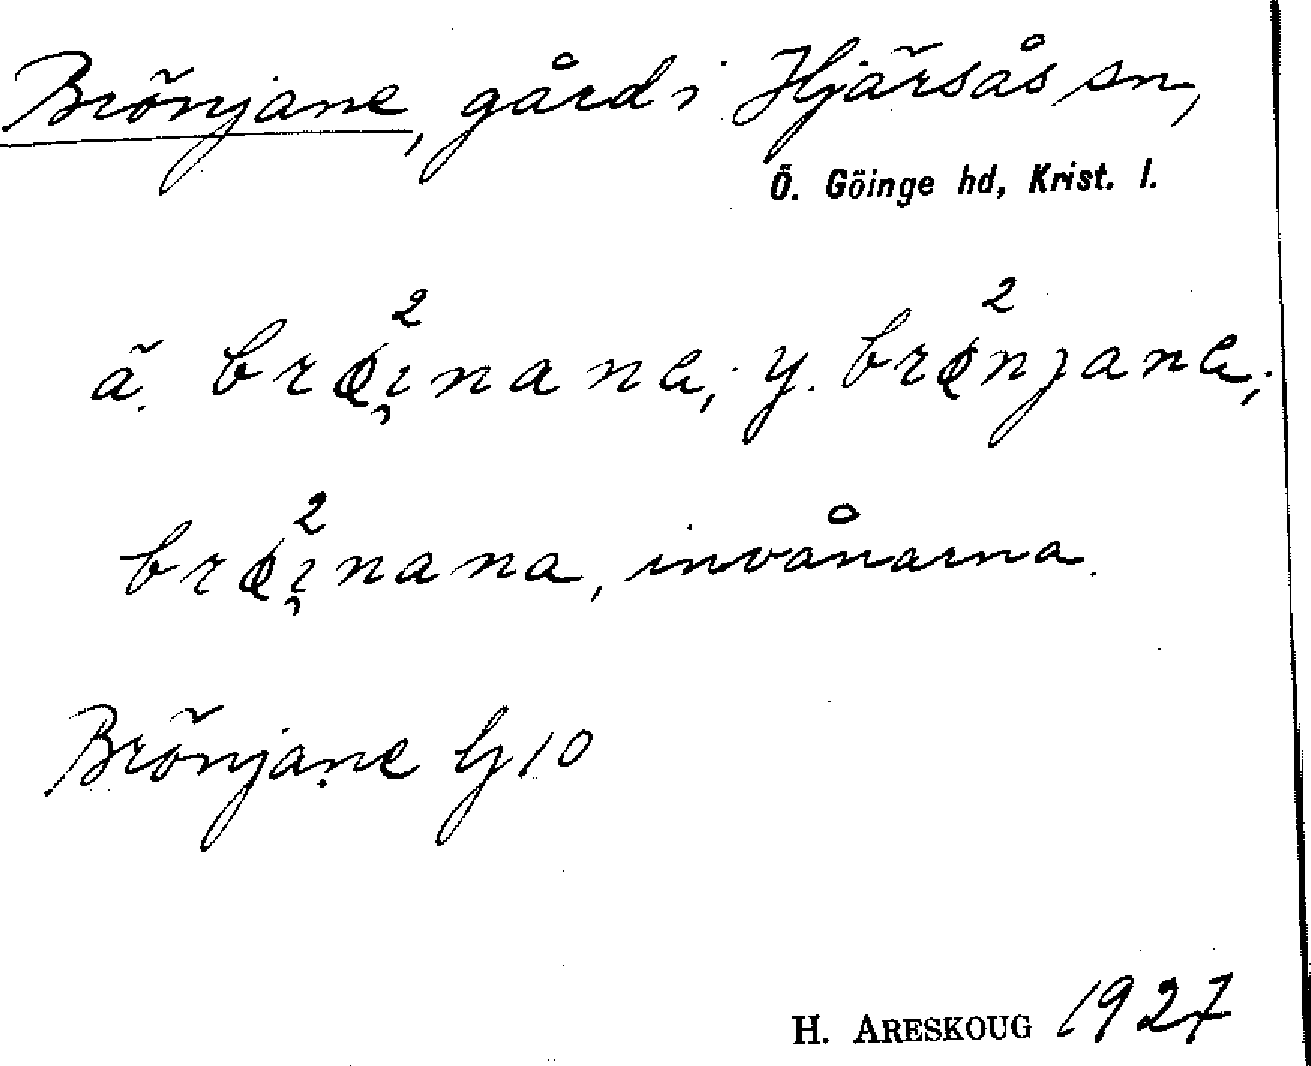 Brönjane, gård i Hjärsås sn,
Ö. Göinge hd, Krist. l.
ä. brø²i̯nana, y. brø²njana;
brø²i̯nana, invånarna.
Brönjane G 10
H. ARESKOUG 1927